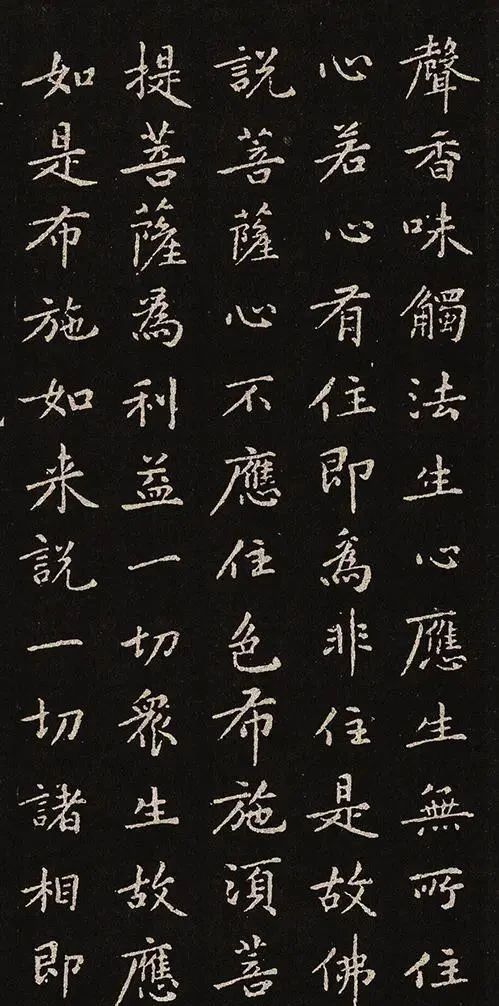 聲香味觸法生心應生無所住
心若心有住即為非住是故佛
說菩薩心不應住色布施須菩
提菩薩為利益一切眾生故應
如是布施如来說一切諸相即